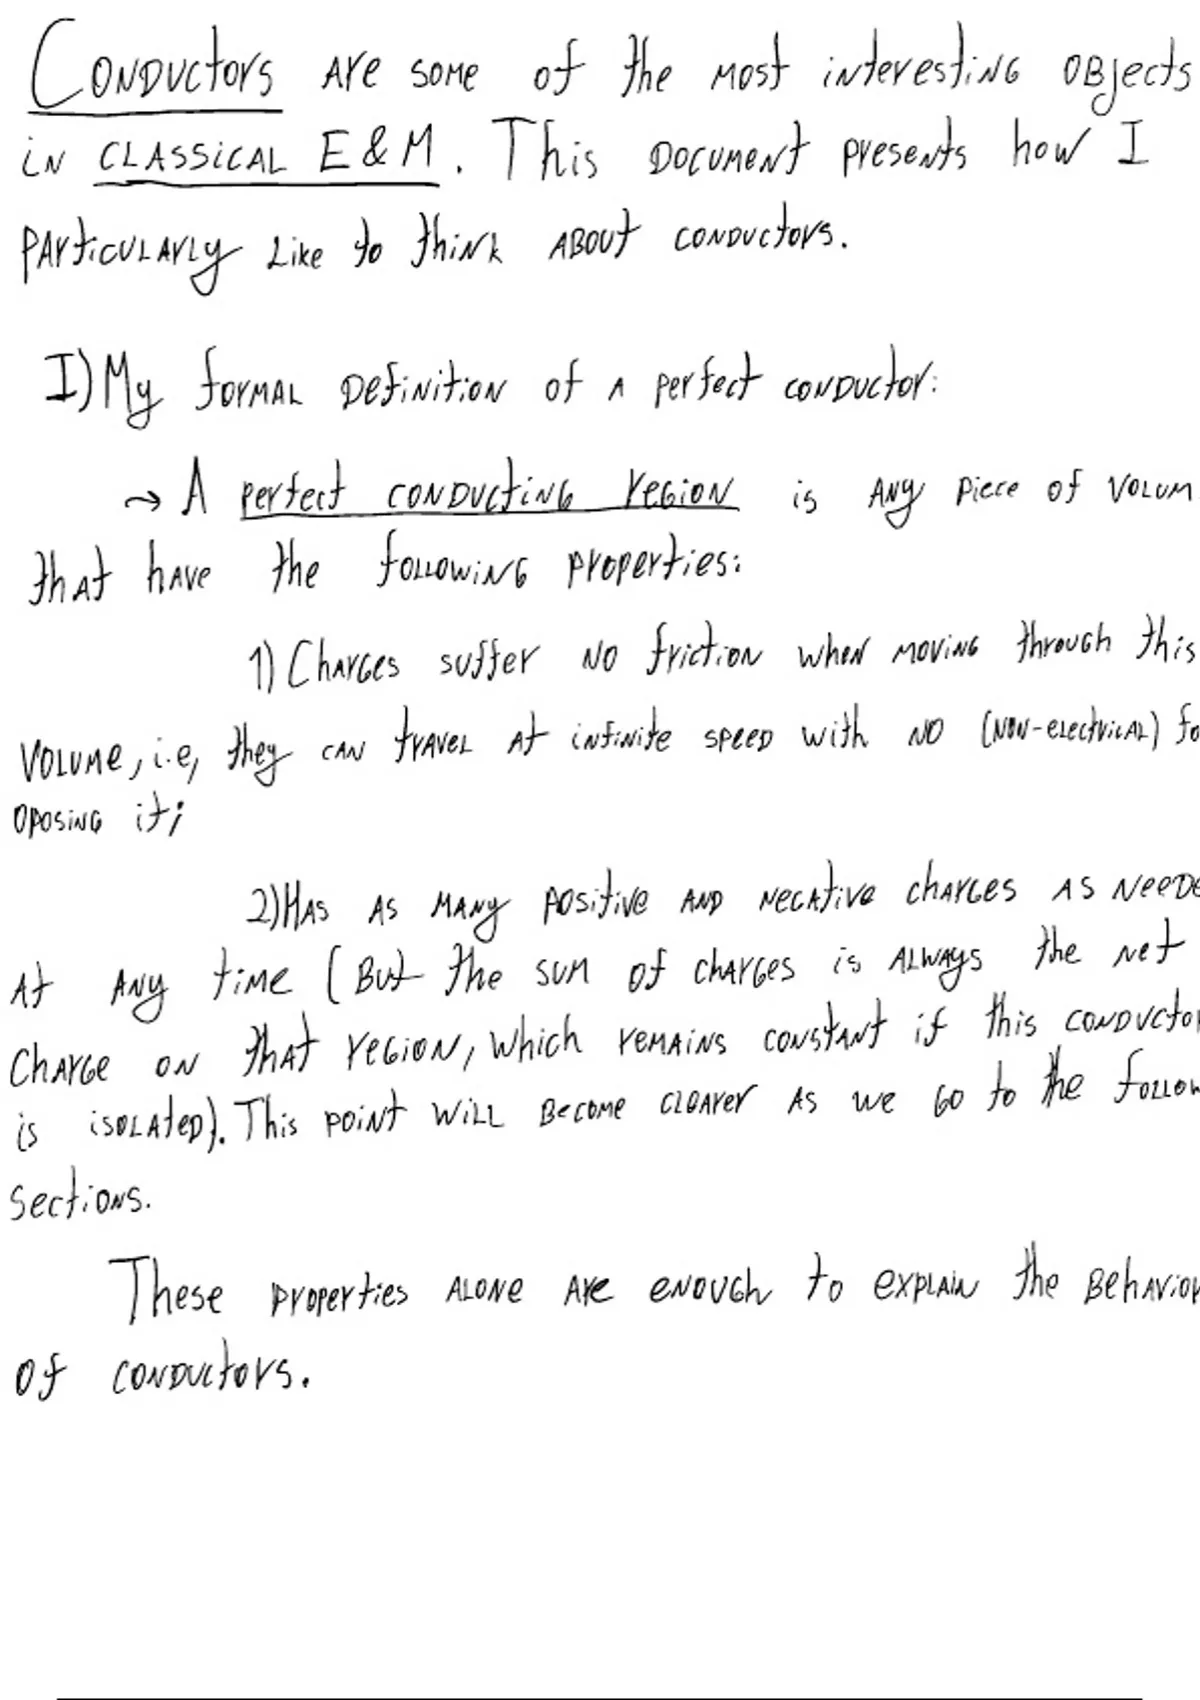 Conductors are some of the most interesting objects
in classical E&M. This document presents how I
particularly like to think about conductors.
I) My formal definition of a perfect conductor:
→ A perfect conducting region is any piece of volum
that have the following properties:
1) Charges suffer no friction when moving through this
volume, i.e, they can travel at infinite speed with no (non-electrical) fo
oposing it;
2) Has as many positive and negative charges as neede
at any time (But the sum of charges is always the net
charge on that region, which remains constant if this conductor
is isolated). This point will become clearer as we go to the follow
sections.
These properties alone are enough to explain the behavior
of conductors.